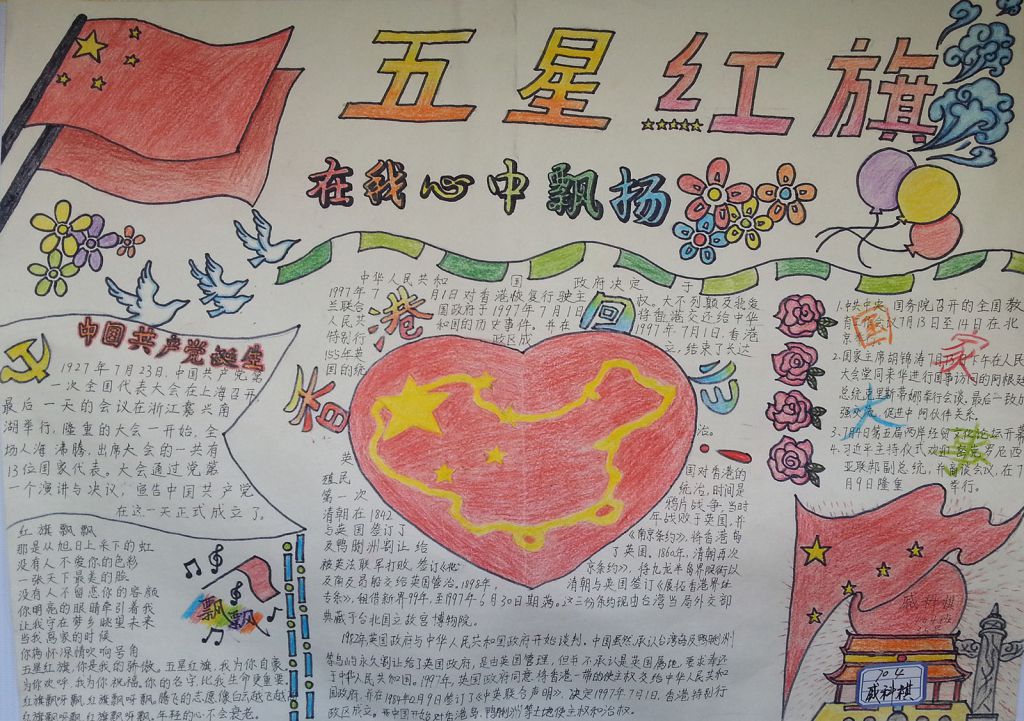 五星红旗
在我心中飘扬
中国共产党诞生
1927年7月23日,中国共产党第
一次全国代表大会在上海召开,
最后一天的会议在浙江嘉兴南
湖举行,隆重的大会一开始,全
场人海沸腾,出席大会的一共有
13位国家代表。大会通过党第
一个演讲与决议,宣告中国共产党
在这一天正式成立了。
红旗飘飘
那是从旭日上采下的虹
没有人不爱你的色彩
一张天下最美的脸
没有人不留恋你的容颜
你明亮的眼睛牵引着我
让我守在梦乡眺望未来
当我离家的时候
你满怀深情吹响号角
五星红旗,你是我的骄傲。五星红旗,我为你自豪。
为你欢呼,我为你祝福,你的名字,比我生命更重要。
红旗飘呀飘,红旗飘呀飘,腾飞的志愿像白云越飞越
红旗飘呀飘,红旗飘呀飘,年轻的心不会衰老。
飘飘
香港回归!
中华人民共和国政府决定于
1997年7月1日对香港恢复行驶主权。大不列颠及北爱
兰联合国政府于1997年7月1日将香港交还给中华
人民共和国的历史事件。并在1997年7月1日,香港
特别行政区成立,结束了长达
155年英
国的统治。
英国对香港的
殖民统治,时间是
第一次鸦片战争,当时
清朝在1842年战败于英国,并
与英国签订了《南京条约》,将香港岛
及鸭脷洲割让给了英国。1860年,清朝再次
被英法联军打败,签订《北京条约》,将九龙半岛界限街以
及南及昂船交给英国管治。1898年,清朝与英国签订《展拓香港界址
专条》,租借新界99年,至1997年6月30日期满。这三份条约现由台湾当局外交部
典藏于台北国立故宫博物院。
1982年,英国政府与中华人民共和国政府开始谈判,中国虽然承认台湾岛及鸭脷洲
等岛的永久割让给了英国政府,是由英国管理,但并不承认是英国属地,要求归还
于中华人民共和国。1997年,英国政府同意将香港一带的使主权交给中华人民共和
国政府,并在1984年12月9日签订了《中英联合声明》,决定1997年7月1日,香港特别行
政区成立。
国家大事
1.中共中央、国务院召开的全国教
7月13日至14日在北
京
2.国家主席胡锦涛7月13日下午在人民
大会堂同来华进行国事访问的阿根廷
总统克里斯蒂娜举行会谈。最后一致加
强交流,促进中阿伙伴关系。
3.7月4日第五届两岸经贸文化论坛开幕
4.习近平主持仪式欢迎密克罗尼西
亚联邦副总统,并面谈会议,在7
月9日隆重举行。
臧科棋
704
臧科棋